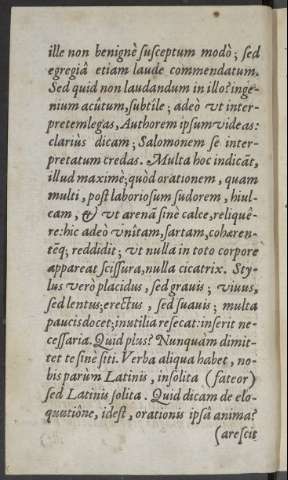 ille non benignè susceptum modò; sed
egregiâ etiam laude commendatum.
Sed quid non laudandum in illo? inge-
nium acútum, subtile; adeò vt inter-
pretem legas, Authorem ipsum videas:
clarius dicam; Salomonem se inter-
pretatum credas. Multa hoc indicāt,
illud maximè; quòd orationem, quam
multi, post laboriosum sudorem, hiul-
cam, & vt arenā sinè calce, reliquê-
re: hic adeò vnitam, sartam, cohæren-
tēq; reddidit; vt nulla in toto corpore
appareat scissura, nulla cicatrix. Sty-
lus verò placidus, sed grauis; viuus,
sed lentus; erectus, sed suauis; multa
paucis docet; inutilia resecat: inserit ne-
cessaria. Quid plus? Nunquàm dimit-
tet te sinè siti. Verba aliqua habet, no-
bis parùm Latinis, insolita (fateor)
sed Latinis solita. Quid dicam de elo-
quutiône, idest, orationis ipsâ animâ?
(arescit